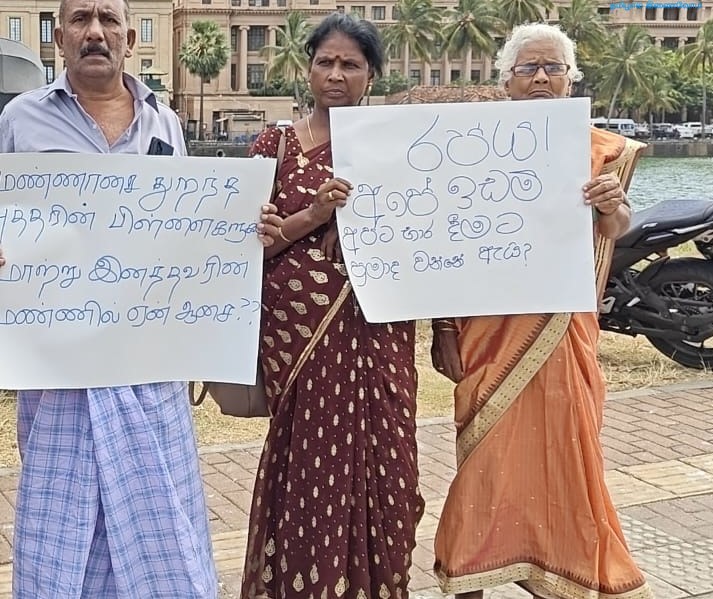 மண்ணாசை துறந்த
புத்தரின் பிள்ளைகளுக்கு
மாற்று இனத்தவரின்
மண்ணில் ஏன் ஆசை??
රජය!
අපේ ඉඩම්
අපට භාර දීමට
ප්‍රමාද වන්නේ ඇයි?